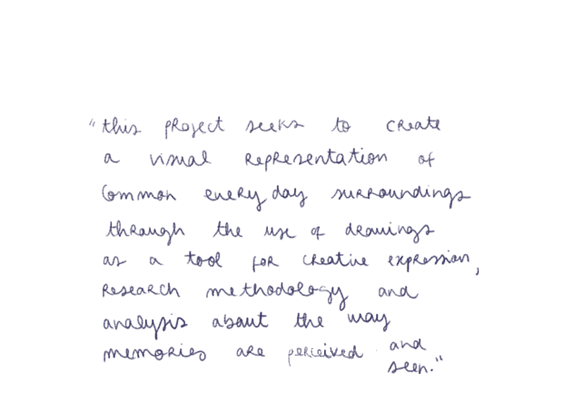 "this project seeks to create
a visual representation of
common every day surroundings
through the use of drawings
as a tool for creative expression,
research methodology and
analysis about the way
memories are perceived and
seen."